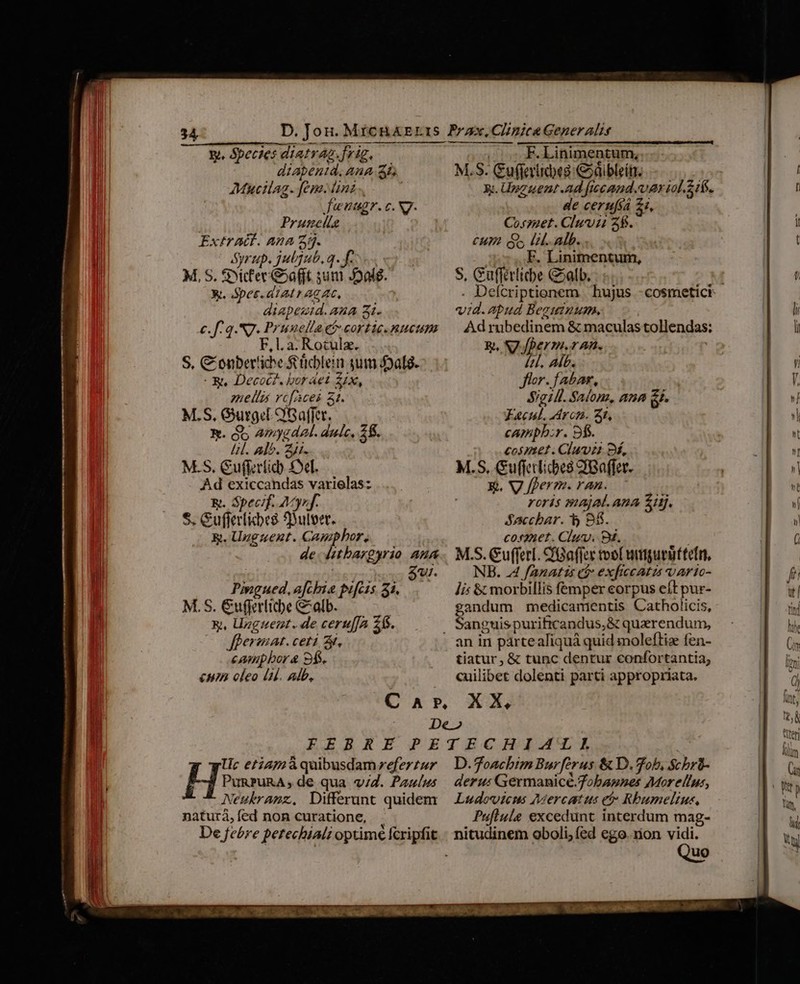 34 D. JOH. MICHAELIS Prax. Clinicæ Generalis
℞. Species diatrag. frig.
diapenid. ana ʒi.
Mucilag. sem. lini
fœnugr. c. 🜄.
Prunellæ
Extract. ana ʒij.
Syrup. jujub. q. s.
M. S. Dicker Safft zum Hals.
℞. Spec. diatragac.
diapenid. ana ʒi.
c. s. q. 🜄. Prunellæ & cortic. nucum
F. l. a. Rotulæ.
S. Sonderliche Küchlein zum Hals.
℞. Decoct. hordei ℥ix,
mellis rosacei ℥i.
M. S. Gurgel Wasser.
℞. amygdal. dulc. ℥ß.
lil. alb. ʒij.
M. S. Eusserlich Oel.
Ad exiccandas variolas:
℞. Specif. Mynsf.
S. Eusserliches Pulver.
℞. Unguent. Camphor.
de lithargyrio ana
ʒvi.
Pingued. aschiæ piscis ʒi,
M. S. Eusserliche Salb.
℞. Unguent. de cerussa ℥ß.
spermat. ceti ʒi,
camphoræ ℈ß.
cum oleo lil. alb.
F. Linimentum,
M. S. Eusserliches Säiblein.
℞. Unguent. ad siccand. variol. ʒiß.
de cerussâ ʒi,
Cosmet. Cluvii ʒß.
cum lil. alb.
F. Linimentum,
S. Eusserliche Salb.
Descriptionem hujus cosmetici
vid. apud Beguinum.
Ad rubedinem & maculas tollendas:
℞. 🜄 sperm. ran.
lil. alb.
flor. fabar,
Sigill. Salom, ana ℥i.
Facul. Aron. ʒi,
camphor. ℈ß.
cosmet. Cluvii ℈i,
M. S. Eusserliches Wasser.
℞. 🜄 sperm. ran.
roris majal. ana ℥iij.
Sacchar. ♄ ℈ß.
cosmet. Cluv. ℈i.
M. S. Eusserl. Wasser wol umzurütteln.
NB. A sanatis & exsiccatis vario-
lis & morbillis semper corpus est pur-
gandum medicamentis Catholicis,
Sanguis purificandus, & quærendum,
an in parte aliquâ quid molestiæ sen-
tiatur, & tunc dentur confortantia,
cuilibet dolenti parti appropriata.
CAP. XX.
De
FEBRE PETECHIALI
Hlc etiam à quibusdam refertur
PURPURA, de qua vid. Paulus
Neukranz. Differunt quidem
naturâ, sed non curatione,
De febre petechiali optimè scripsit
D. Joachim Burserus & D. Joh. Schrö-
derus Germanicè. Johannes Morellus,
Ludovicus Mercatus & Rhumelius.
Pustulæ excedunt interdum mag-
nitudinem oboli, sed ego non vidi.
Quo